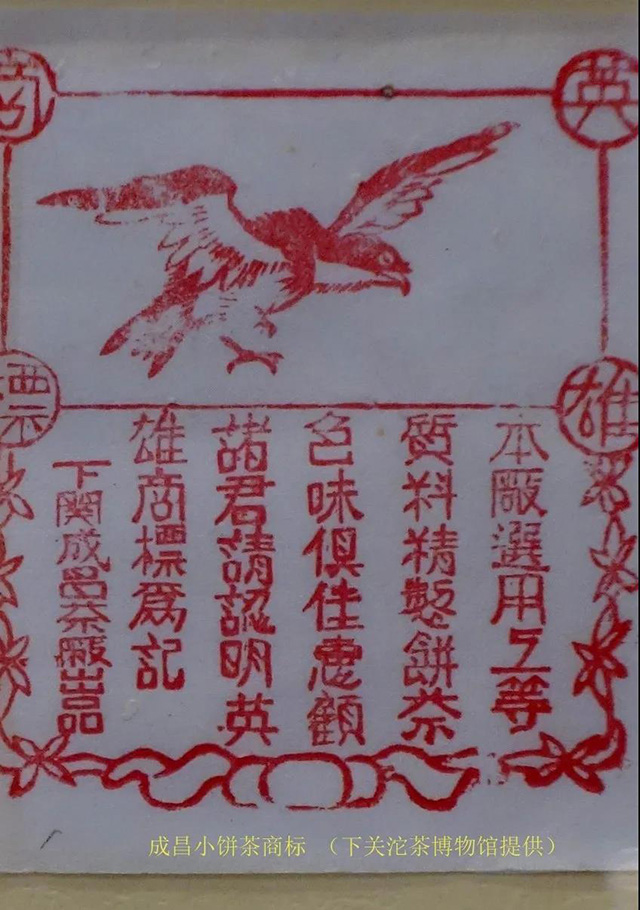 英雄
商標
本廠選用上等
質料精製餅茶
色味俱佳惠顧
諸君請認明英
雄商標爲記
下關成昌茶廠出品
成昌小饼茶商标 （下关沱茶博物馆提供）